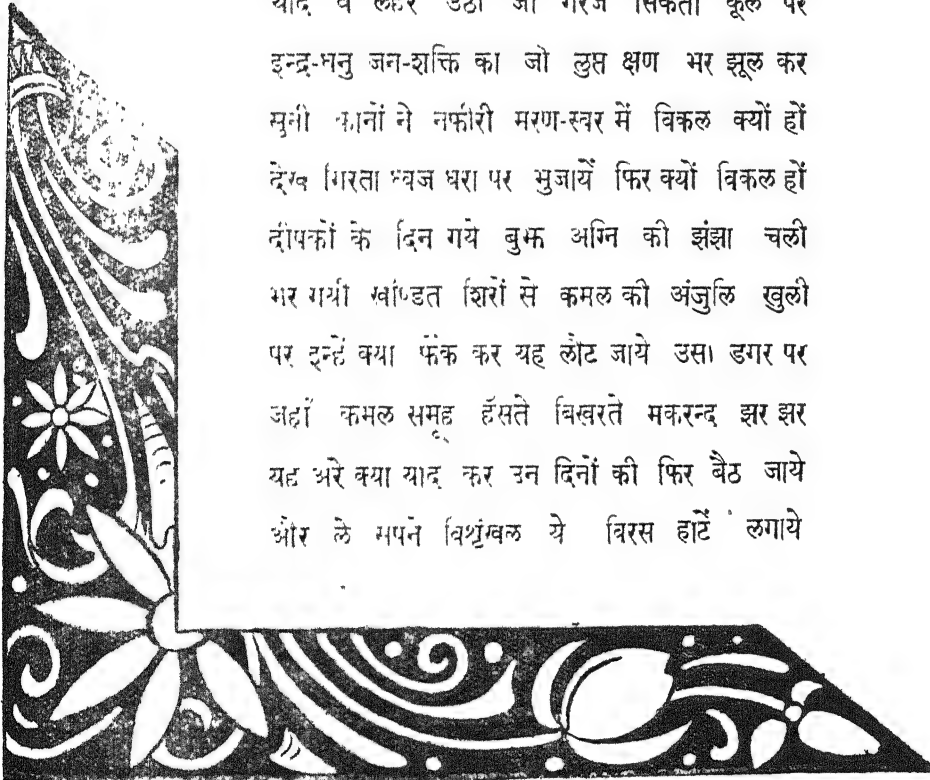 याद वे लहरें उठी जो गरज सिकता कूल पर
इन्द्र-धनु जन-शक्ति का जो लुप्त क्षण भर झूल कर
सुनी कानों ने नफीरी मरण-स्वर में विकल क्यों हों
देख गिरता ध्वज धरा पर भुजायें फिर क्यों विकल हों
दीपकों के दिन गये बुझ अग्नि की झंझा चली
भर गयी खण्डित शिरों से कमल की अंजुलि खुली
पर इन्हें क्या फेंक कर यह लौट जाये उसी डगर पर
जहाँ कमल समूह हँसते बिखरते मकरन्द झर झर
यह अरे क्या याद कर उन दिनों की फिर बैठ जाये
और ले सपने विश्रृंखल ये विरस हाटें लगाये